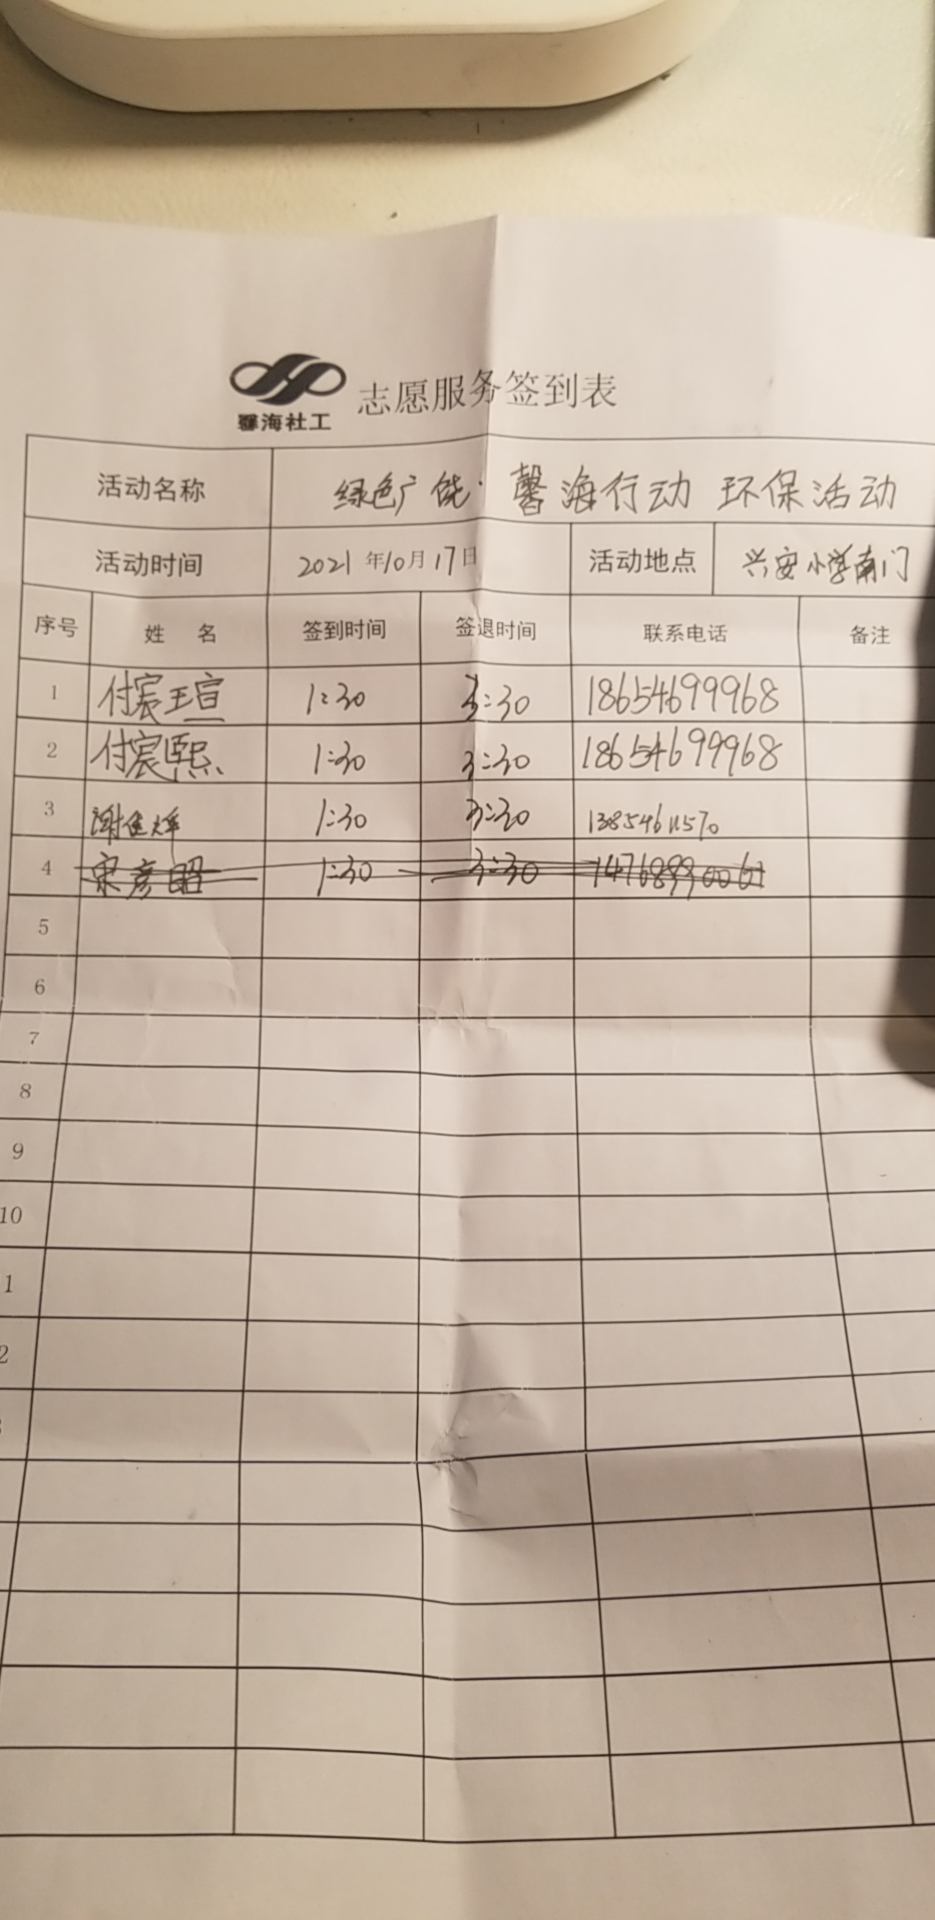 馨海社工 志愿服务签到表
活动名称 绿色广饶·馨海行动 环保活动
活动时间 2021年10月17日 活动地点 兴安小学南门
序号 姓 名 签到时间 签退时间 联系电话 备注
1 付宸瑄 1:30 3:30 18654699968
2 付宸熙 1:30 3:30 18654699968
3 谢 1:30 3:30 13854611570
4 宋彦昭 1:30 3:30
5
6
7
8
9
10
1
2